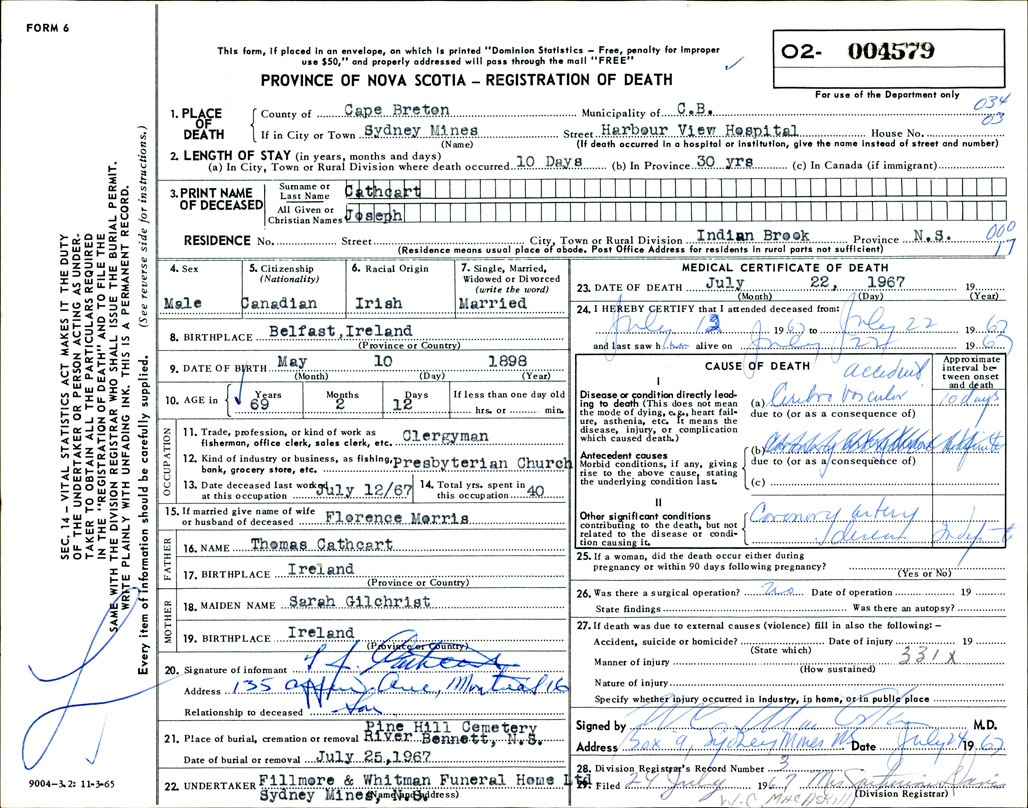 FORM 6
This form, if placed in an envelope, on which is printed "Dominion Statistics — Free, penalty for improper
use $50," and properly addressed will pass through the mail "FREE"
O2- 004579
For use of the Department only
PROVINCE OF NOVA SCOTIA — REGISTRATION OF DEATH
034
03
1. PLACE OF DEATH
County of Cape Breton Municipality of C.B.
If in City or Town Sydney Mines Street Harbour View Hospital House No.
(Name) (If death occurred in a hospital or institution, give the name instead of street and number)
2. LENGTH OF STAY (in years, months and days)
(a) In City, Town or Rural Division where death occurred 10 Days (b) In Province 30 yrs (c) In Canada (if immigrant)
3. PRINT NAME OF DECEASED
Surname or Last Name Cathcart
All Given or Christian Names Joseph
RESIDENCE No. Street City, Town or Rural Division Indian Brook Province N.S.
000
17
(Residence means usual place of abode. Post Office Address for residents in rural parts not sufficient)
4. Sex
Male
5. Citizenship
(Nationality)
Canadian
6. Racial Origin
Irish
7. Single, Married,
Widowed or Divorced
(write the word)
Married
8. BIRTHPLACE Belfast,Ireland
(Province or Country)
9. DATE OF BIRTH May 10 1898
(Month) (Day) (Year)
10. AGE in
Years 69
Months 2
Days 12
If less than one day old
hrs. or min.
OCCUPATION
11. Trade, profession, or kind of work as
fisherman, office clerk, sales clerk, etc. Clergyman
12. Kind of industry or business, as fishing,
bank, grocery store, etc. Presbyterian Church
13. Date deceased last worked
at this occupation July 12/67
14. Total yrs. spent in
this occupation 40
15. If married give name of wife
or husband of deceased Florence Morris
FATHER
16. NAME Thomas Cathcart
17. BIRTHPLACE Ireland
(Province or Country)
MOTHER
18. MAIDEN NAME Sarah Gilchrist
19. BIRTHPLACE Ireland
(Province or Country)
20. Signature of informant Cathcart
Address 135 Ave, Montreal 16
Relationship to deceased Son
21. Place of burial, cremation or removal Pine Hill Cemetery
River Bennett, N.S.
Date of burial or removal July 25,1967
22. UNDERTAKER Fillmore & Whitman Funeral Home Ltd
Sydney Mines, N.S.
(Name and address)
MEDICAL CERTIFICATE OF DEATH
23. DATE OF DEATH July 22, 1967 19
(Month) (Day) (Year)
24. I HEREBY CERTIFY that I attended deceased from:
July 12 1967 to July 22 1967
and last saw h im alive on July 22 1967
CAUSE OF DEATH
Approximate interval between onset and death
I
Disease or condition directly leading to death (This does not mean the mode of dying, e.g., heart failure, asthenia, etc. It means the disease, injury, or complication which caused death.)
accident
(a) Cerebro Vascular 10 days
due to (or as a consequence of)
Antecedent causes
Morbid conditions, if any, giving rise to the above cause, stating the underlying condition last.
(b)
due to (or as a consequence of)
(c)
II
Other significant conditions
contributing to the death, but not related to the disease or condition causing it.
Coronary artery
25. If a woman, did the death occur either during
pregnancy or within 90 days following pregnancy?
(Yes or No)
26. Was there a surgical operation? no Date of operation 19
State findings Was there an autopsy?
27. If death was due to external causes (violence) fill in also the following: —
Accident, suicide or homicide? Date of injury 19
(State which)
331X
Manner of injury
(How sustained)
Nature of injury
Specify whether injury occurred in industry, in home, or in public place
Signed by M.D.
Address Box 9, Sydney Mines NS Date July 24 1967
28. Division Registrar's Record Number 3
29. Filed 24 July 1967 Mrs
(Division Registrar)
W.C. MacAskill
SEC. 14 — VITAL STATISTICS ACT MAKES IT THE DUTY
OF THE UNDERTAKER OR PERSON ACTING AS UNDER-
TAKER TO OBTAIN ALL THE PARTICULARS REQUIRED
IN THE "REGISTRATION OF DEATH" AND TO FILE THE
SAME WITH THE DIVISION REGISTRAR WHO SHALL ISSUE THE BURIAL PERMIT.
WRITE PLAINLY WITH UNFADING INK. THIS IS A PERMANENT RECORD.
Every item of information should be carefully supplied. (See reverse side for instructions.)
9004-3.2: 11-3-65